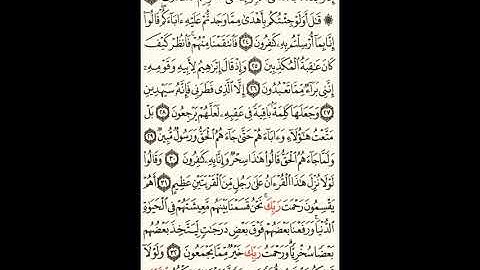 ۞ قَٰلَ أَوَلَوْ جِئْتُكُم بِأَهْدَىٰ مِمَّا وَجَدتُّمْ عَلَيْهِ ءَابَآءَكُمْ قَالُوٓا۟
إِنَّا بِمَآ أُرْسِلْتُم بِهِۦ كَٰفِرُونَ ٢٤ فَٱنتَقَمْنَا مِنْهُمْ فَٱنظُرْ كَيْفَ
كَانَ عَٰقِبَةُ ٱلْمُكَذِّبِينَ ٢٥ وَإِذْ قَالَ إِبْرَٰهِيمُ لِأَبِيهِ وَقَوْمِهِۦٓ
إِنَّنِى بَرَآءٌ مِّمَّا تَعْبُدُونَ ٢٦ إِلَّا ٱلَّذِى فَطَرَنِى فَإِنَّهُۥ سَيَهْدِينِ
٢٧ وَجَعَلَهَا كَلِمَةًۢ بَاقِيَةً فِى عَقِبِهِۦ لَعَلَّهُمْ يَرْجِعُونَ ٢٨ بَلْ
مَتَّعْتُ هَٰٓؤُلَآءِ وَءَابَآءَهُمْ حَتَّىٰ جَآءَهُمُ ٱلْحَقُّ وَرَسُولٌ مُّبِينٌ ٢٩
وَلَمَّا جَآءَهُمُ ٱلْحَقُّ قَالُوا۟ هَٰذَا سِحْرٌ وَإِنَّا بِهِۦ كَٰفِرُونَ ٣٠ وَقَالُوا۟
لَوْلَا نُزِّلَ هَٰذَا ٱلْقُرْءَانُ عَلَىٰ رَجُلٍ مِّنَ ٱلْقَرْيَتَيْنِ عَظِيمٍ ٣١ أَهُمْ
يَقْسِمُونَ رَحْمَتَ رَبِّكَ نَحْنُ قَسَمْنَا بَيْنَهُم مَّعِيشَتَهُمْ فِى ٱلْحَيَوٰةِ
ٱلدُّنْيَا وَرَفَعْنَا بَعْضَهُمْ فَوْقَ بَعْضٍ دَرَجَٰتٍ لِّيَتَّخِذَ بَعْضُهُم
بَعْضًا سُخْرِيًّا وَرَحْمَتُ رَبِّكَ خَيْرٌ مِّمَّا يَجْمَعُونَ ٣٢ وَلَوْلَآ